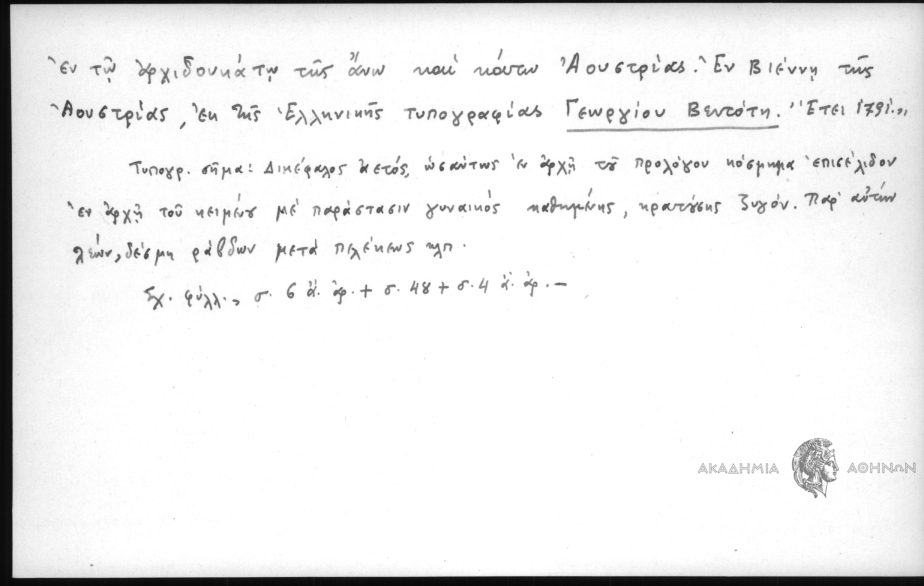 ἐν τῷ ἀρχιδουκάτῳ τῆς ἄνω καὶ κάτω Ἀουστρίας. Ἐν Βιέννῃ τῆς
Ἀουστρίας, ἐκ τῆς Ἑλληνικῆς τυπογραφίας Γεωργίου Βεντότη. Ἔτει 1791.,,
Τυπογρ. σῆμα: Δικέφαλος ἀετός, ὡσαύτως ἐν ἀρχῇ τοῦ προλόγου κόσμημα ἐπισέλιδον
ἐν ἀρχῇ τοῦ κειμένου μὲ παράστασιν γυναικὸς καθημένης, κρατούσης ζυγόν. Παρ' αὐτὴν
λέων, δέσμη ράβδων μετὰ πελέκεως κλπ.
Σχ. φύλλ., σ. 6 ἀ. ἀρ. + σ. 48 + σ. 4 ἀ. ἀρ. –
ΑΚΑΔΗΜΙΑ ΑΘΗΝΩΝ